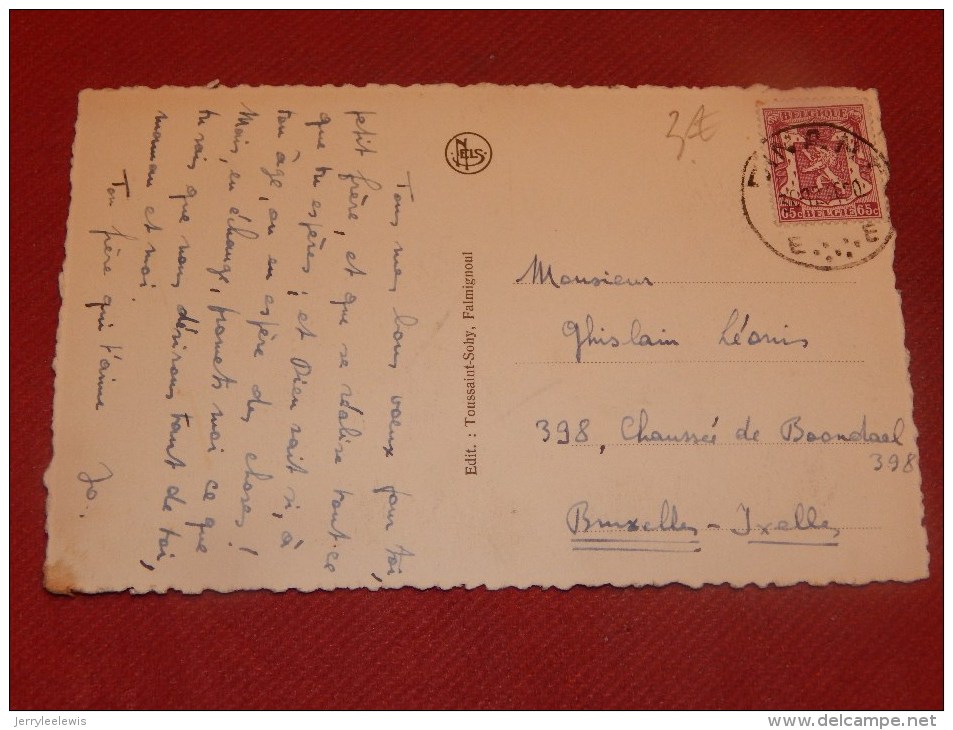 Tous mes bons vœux pour toi,
petit frère, et que se réalise tout ce
que tu espères ; et Dieu sait si, à
ton âge, on en espère des choses !
Mais, en échange, promets moi ce que
tu sais que nous désirons tant de toi,
maman et moi
Ton frère qui t'aime
Jo.
NELS
Edit. : Toussaint-Sohy, Falmignoul
3€
BELGIQUE
65c BELGIE 65c
E E
Monsieur
Ghislain Léonis
398, Chaussée de Boondael
398
Bruxelles - Ixelles
Jerryleelewis
www.delcampe.net